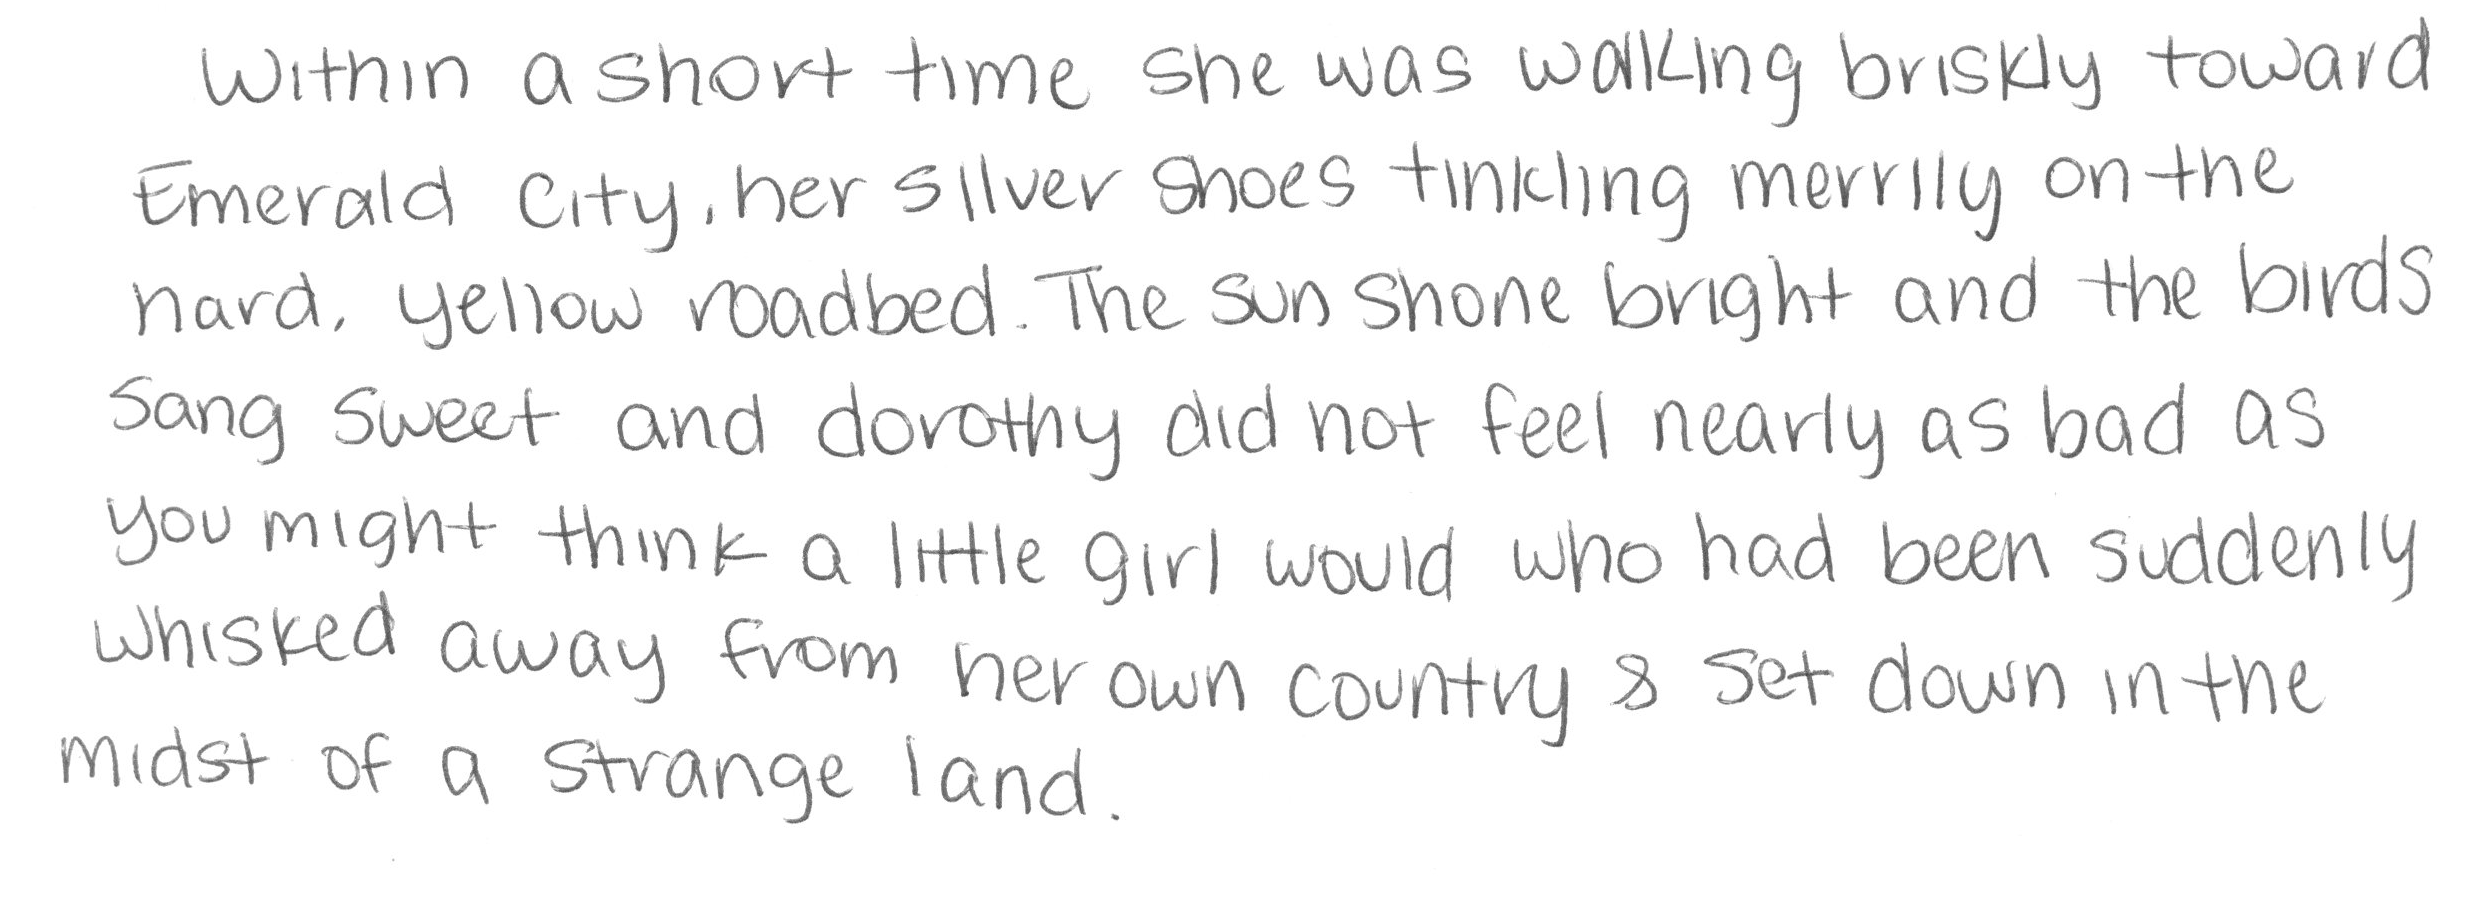 Within a short time she was walking briskly toward
Emerald City, her silver shoes tinkling merrily on the
hard, yellow roadbed. The sun shone bright and the birds
sang sweet and dorothy did not feel nearly as bad as
you might think a little girl would who had been suddenly
whisked away from her own country & set down in the
midst of a strange land.